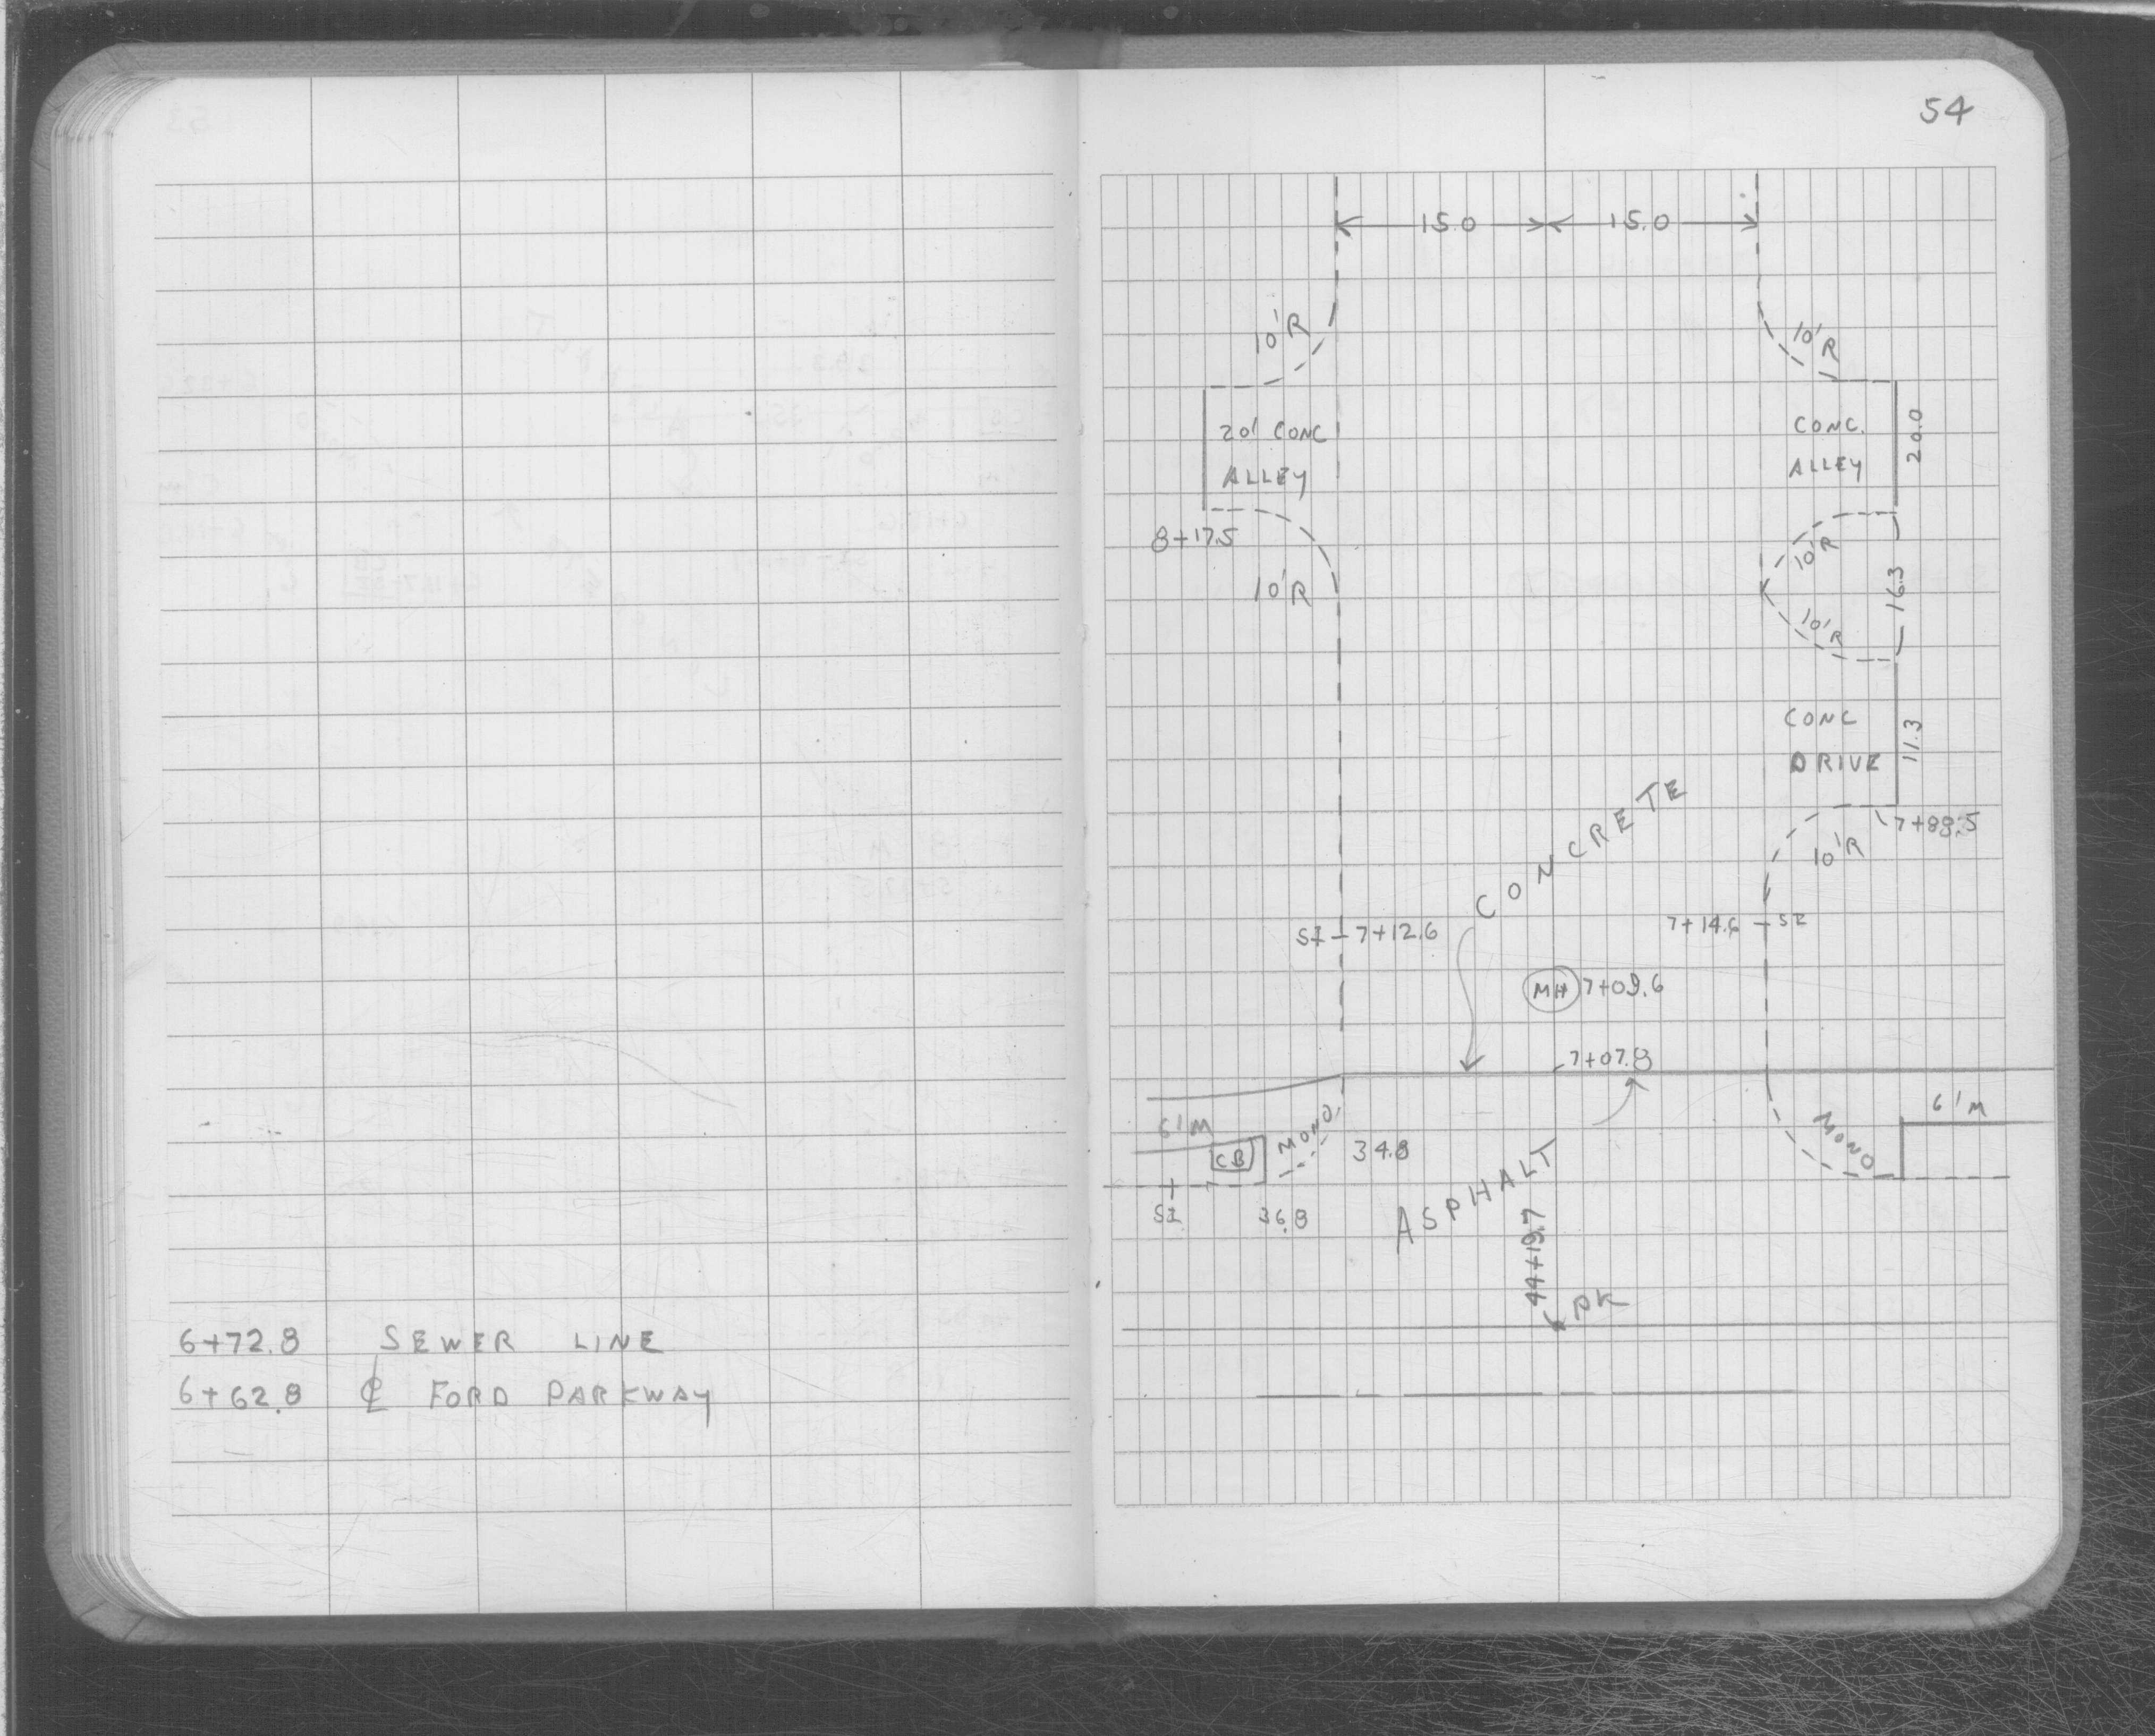 54
15.0 15.0
10'R 10'R
20' CONC
ALLEY
CONC.
ALLEY
20.0
8+17.5
10'R
10'R
16.3
10'R
CONC
DRIVE
11.3
CONCRETE
7+88.5
10'R
SI 7+12.6
7+14.6 SI
MH 7+09.6
7+07.8
6'M
CB
MONO.
34.8
MONO
6'M
SI
36.8
ASPHALT
44+19.7
PK
6+72.8 SEWER LINE
6+62.8 ℄ FORD PARKWAY